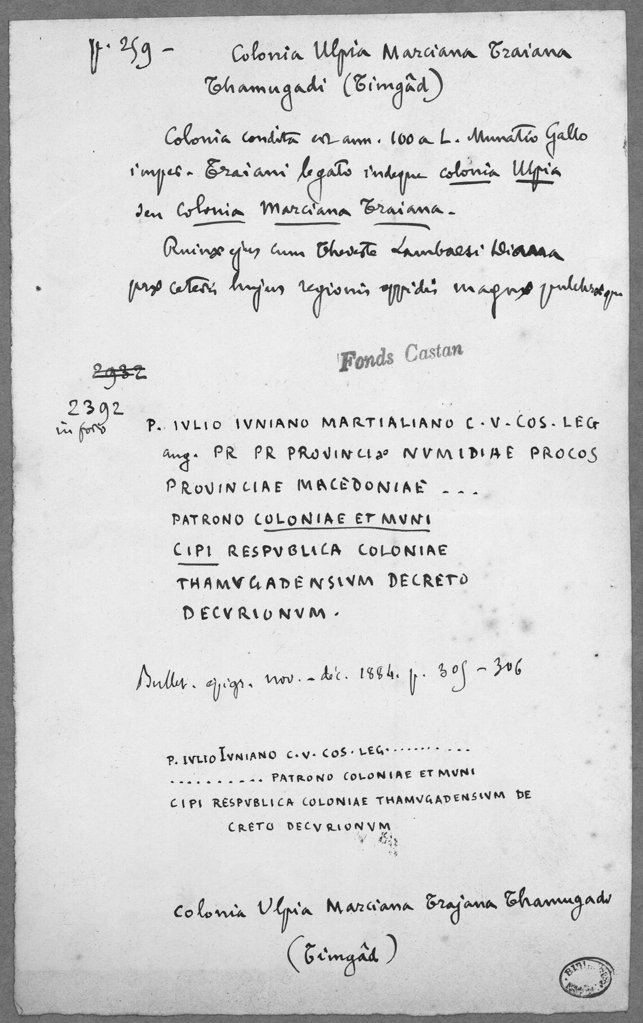 p. 259 - Colonia Ulpia Marciana Traiana
Thamugadi (Timgâd)
Colonia condita est ann. 100 a L. Munatio Gallo
imper. Traiani legato indeque colonia Ulpia
seu Colonia Marciana Traiana.
Ruinæ ejus cum Theveste Lambaesi Diana
præ ceteris hujus regionis oppidis magnæ pulchræque
Fonds Castan
2932
2392
in foro
P. IVLIO IVNIANO MARTIALIANO C. V. COS. LEG
aug. PR PR PROVINCIæ NVMIDIAE PROCOS
PROVINCIAE MACEDONIAE ...
PATRONO COLONIAE ET MVNI
CIPI RESPVBLICA COLONIAE
THAMVGADENSIVM DECRETO
DECVRIONVM.
Bullet. epigr. nov. - déc. 1884. p. 305 - 306
P. IVLIO IVNIANO C. V. COS. LEG...........
.......... PATRONO COLONIAE ET MVNI
CIPI RESPVBLICA COLONIAE THAMVGADENSIVM DE
CRETO DECVRIONVM
Colonia Vlpia Marciana Trajana Thamugadi
(Timgâd)